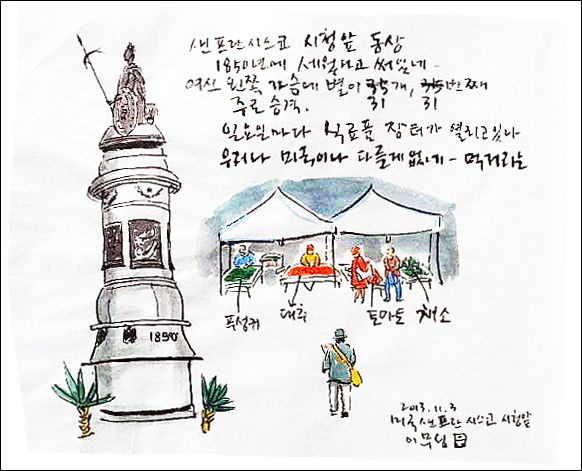 샌프란시스코 시청앞 동상
1850년에 세웠다고 써있네-
여신 왼쪽 가슴에 별이 35개, 35번째
주로 승격. 31 31
일요일마다 식료품 장터가 열리고있다
우리나 미국이나 다를게없네- 먹거리는
푸성귀 대추 토마토 채소
1850
2013.11.3
미국샌프란시스코 시청앞
이무성